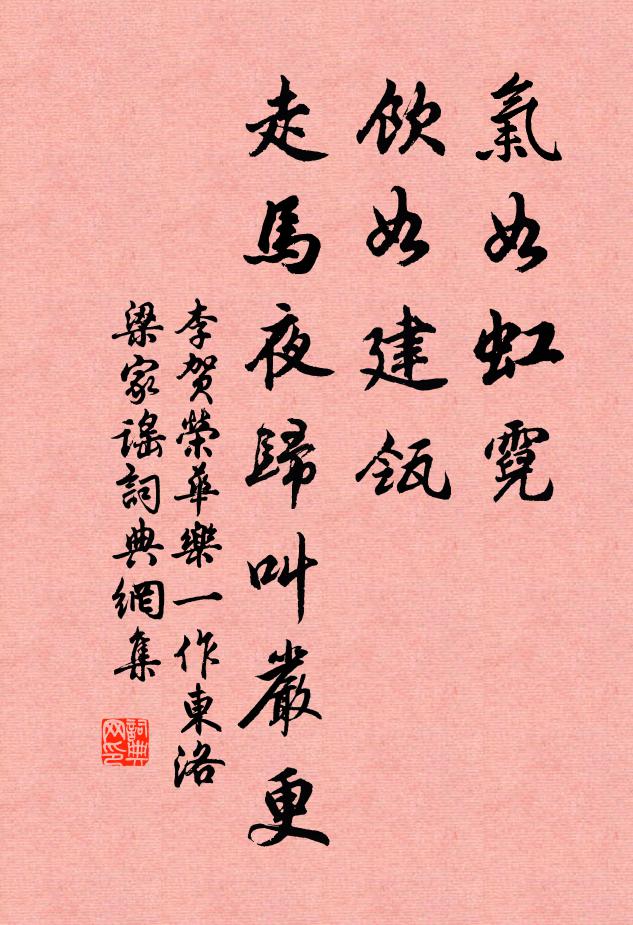 氣如虹霓
飲如建瓴
走馬夜歸叫嚴更
李賀榮華樂一作東洛
梁家謠詞典網集
詞典
网印